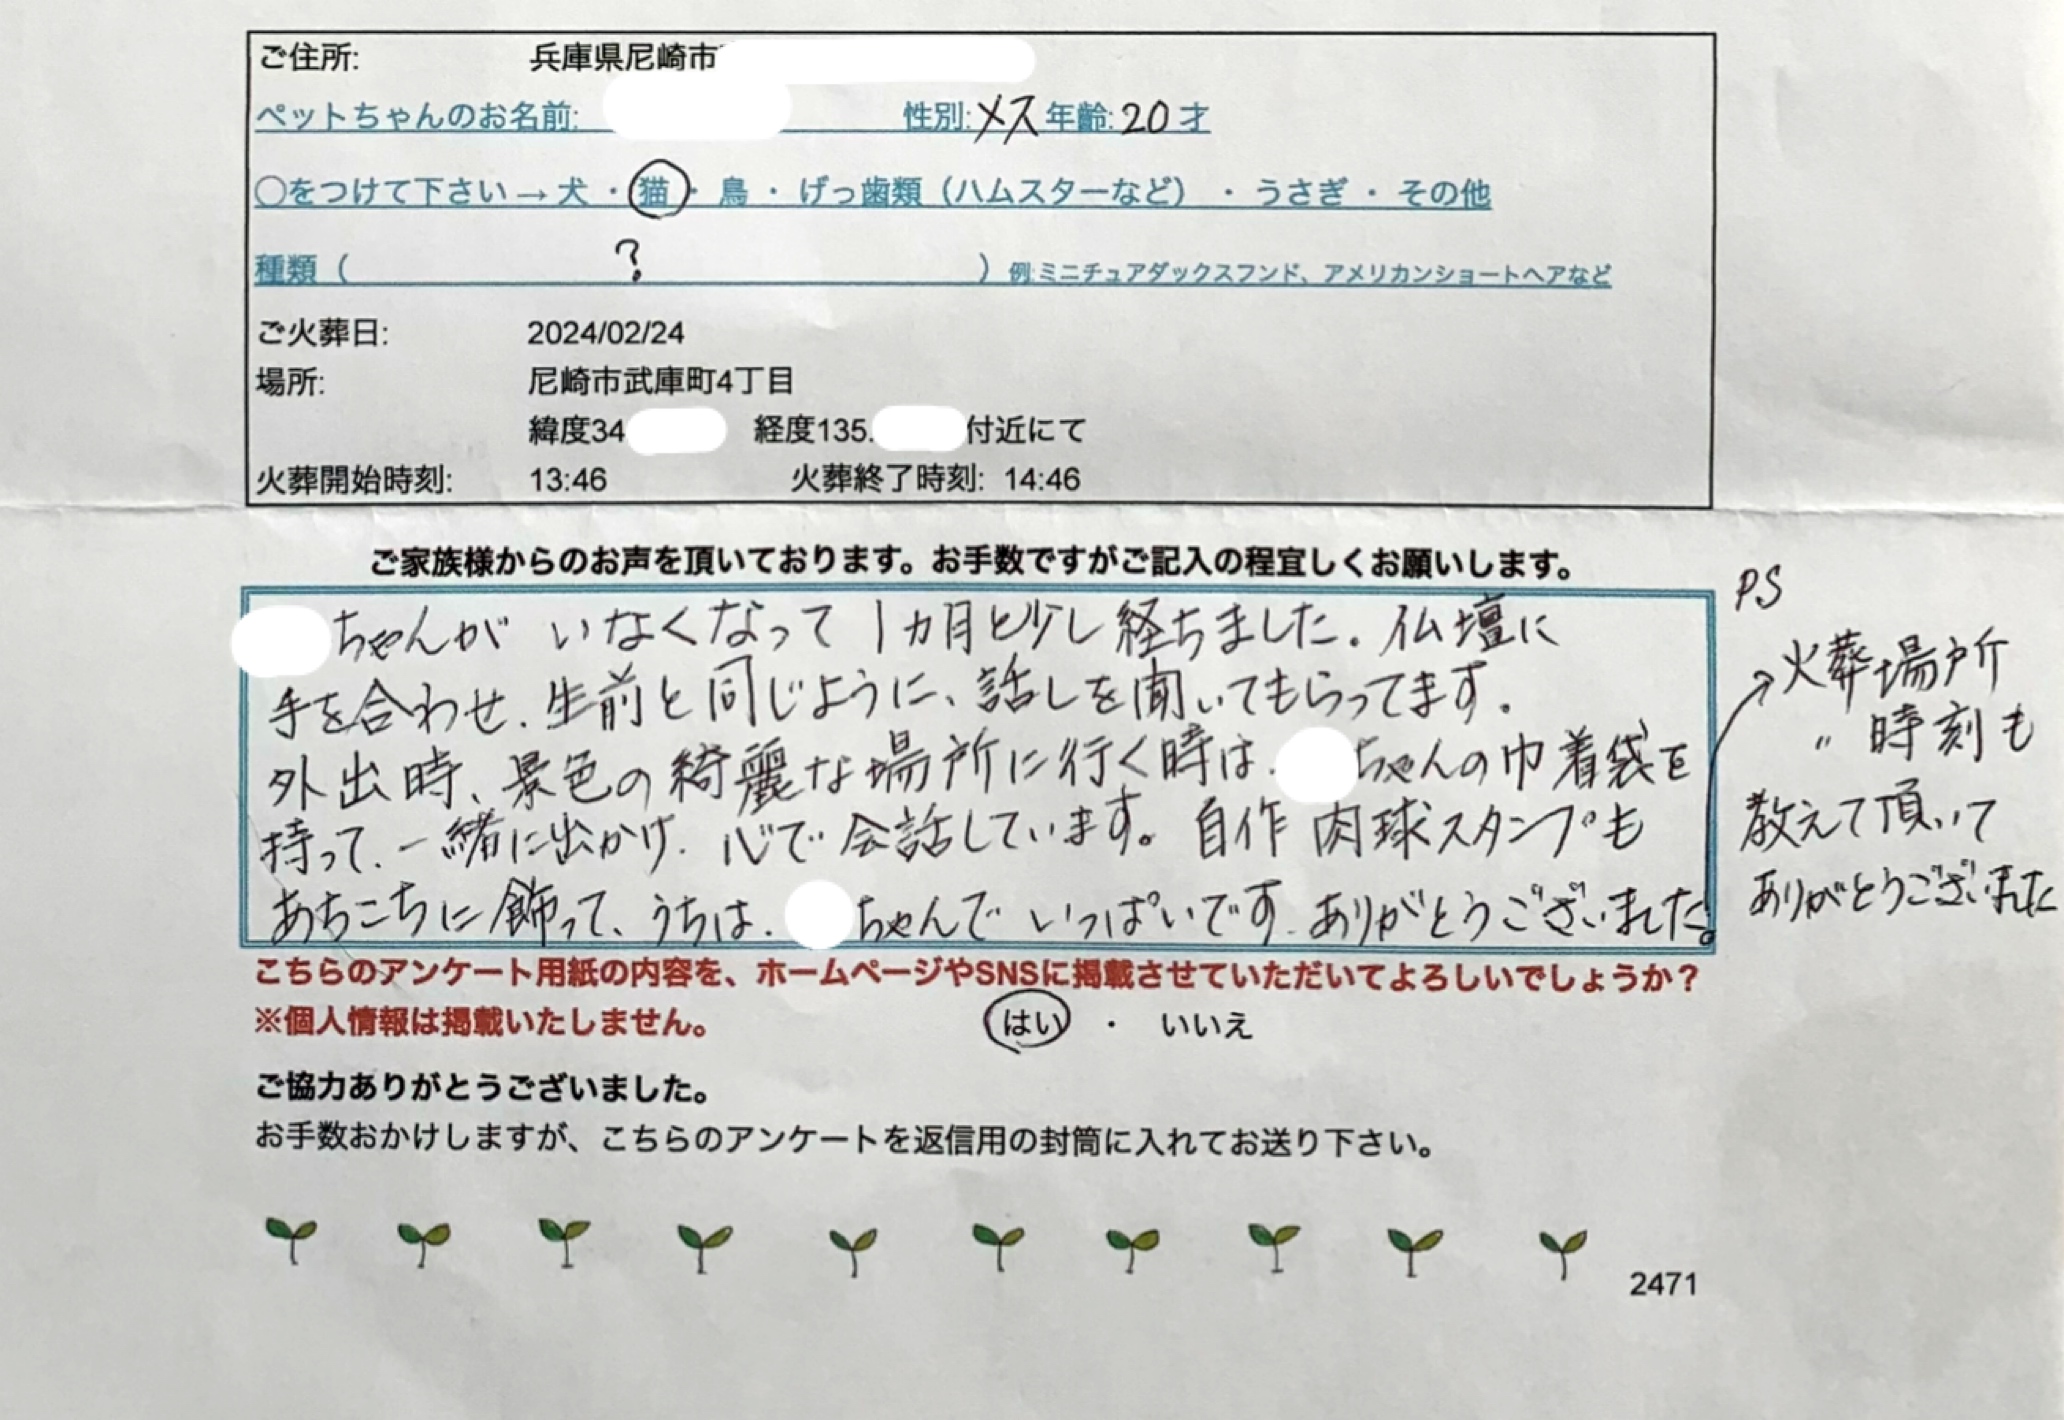 ご住所: 兵庫県尼崎市
ペットちゃんのお名前: 性別:メス 年齢:20才
○をつけて下さい→犬 ・ 猫 ・ 鳥 ・ げっ歯類（ハムスターなど） ・ うさぎ ・ その他
種類（ ? ）例:ミニチュアダックスフンド、アメリカンショートヘアなど
ご火葬日: 2024/02/24
場所: 尼崎市武庫町4丁目
緯度34 経度135. 付近にて
火葬開始時刻: 13:46 火葬終了時刻: 14:46
ご家族様からのお声を頂いております。お手数ですがご記入の程宜しくお願いします。
ちゃんが いなくなって 1カ月と少し経ちました。仏壇に
手を合わせ、生前と同じように、話しを聞いてもらってます。
外出時、景色の綺麗な場所に行く時は、ちゃんの巾着袋を
持って、一緒に出かけ、心で会話しています。自作肉球スタンプも
あちこちに飾って、うちは、ちゃんでいっぱいです。ありがとうございました。
PS
→火葬場所
〃 時刻も
教えて頂いて
ありがとうございました
こちらのアンケート用紙の内容を、ホームページやSNSに掲載させていただいてよろしいでしょうか？
※個人情報は掲載いたしません。 はい ・ いいえ
ご協力ありがとうございました。
お手数おかけしますが、こちらのアンケートを返信用の封筒に入れてお送り下さい。
2471